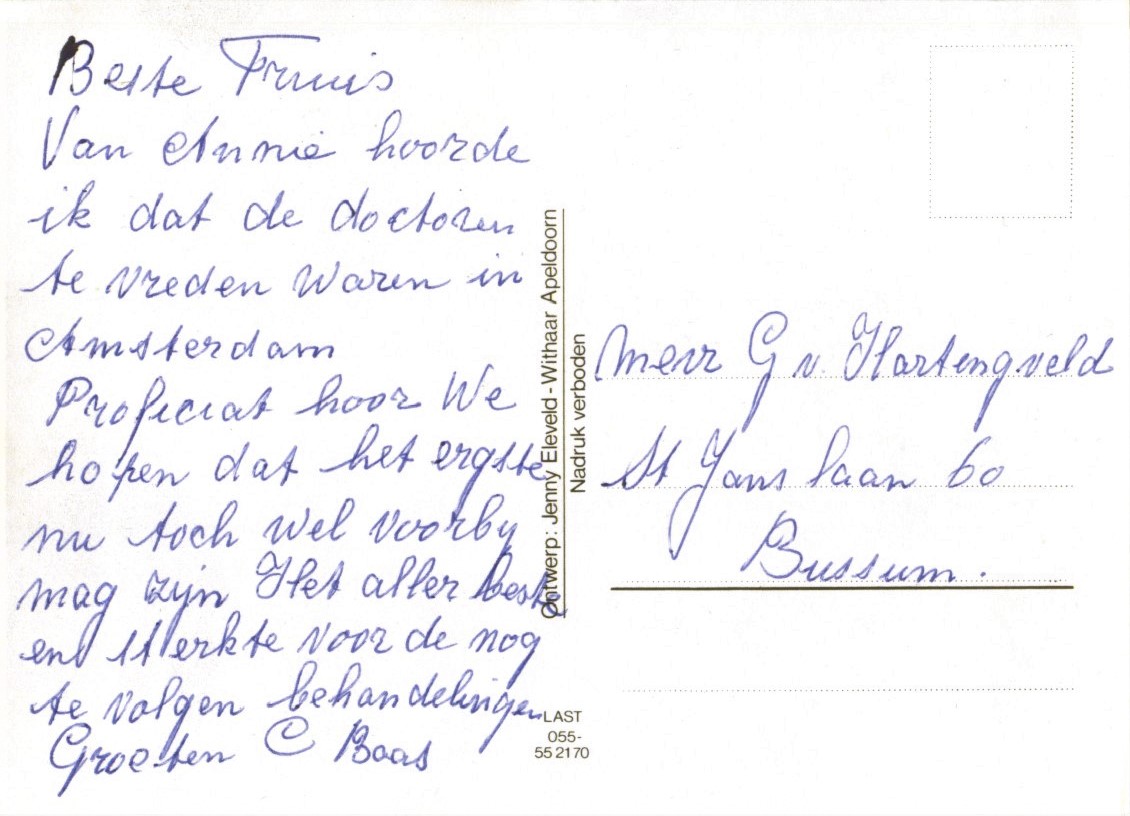 Beste Truus
Van Annie hoorde
ik dat de doctoren
te vreden waren in
Amsterdam
Proficiat hoor We
hopen dat het ergste
nu toch wel voorby
mag zijn Het aller beste
en sterkte voor de nog
te volgen behandelingen
Groeten C Baas
Ontwerp: Jenny Eleveld - Withaar Apeldoorn
Nadruk verboden
LAST
055-
55 2170
Mevr G v. Hartengveld
St Jans laan 60
Bussum.